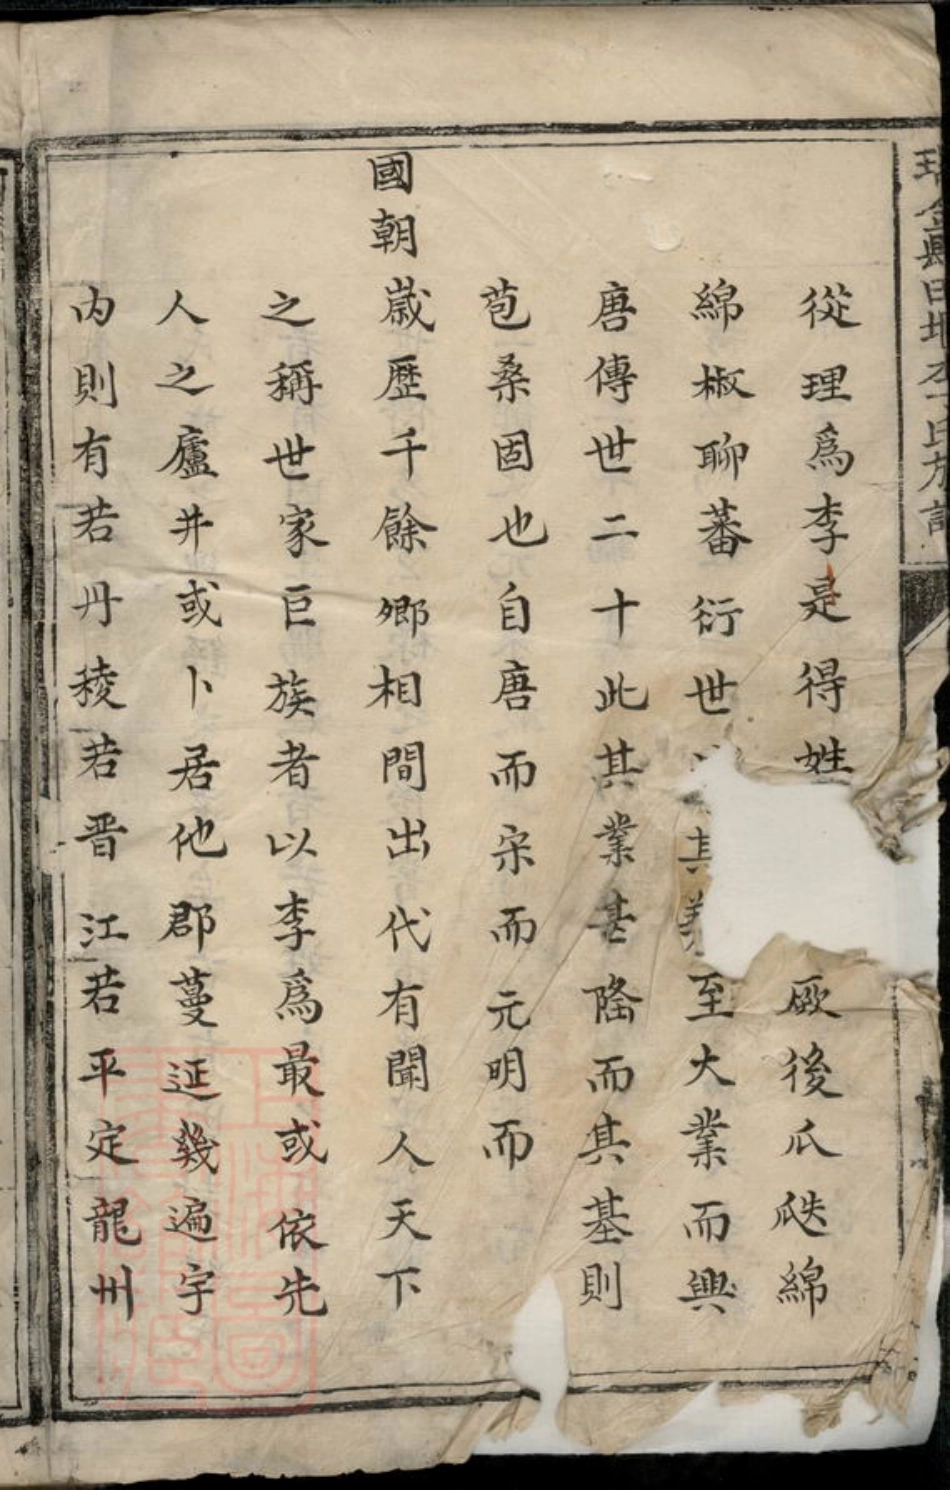 瑞金縣田塅李氏族譜
從理爲李是得姓厥後瓜瓞綿
綿椒聊蕃衍世其至大業而興
唐傳世二十此其業甚隆而其基則
苞桑固也自唐而宋而元明而
國朝歲歷千餘鄉相間出代有聞人天下
之稱世家巨族者以李爲最或依先
人之廬井或卜居他郡蔓延幾遍宇
内則有若丹稜若晋江若平定龍州